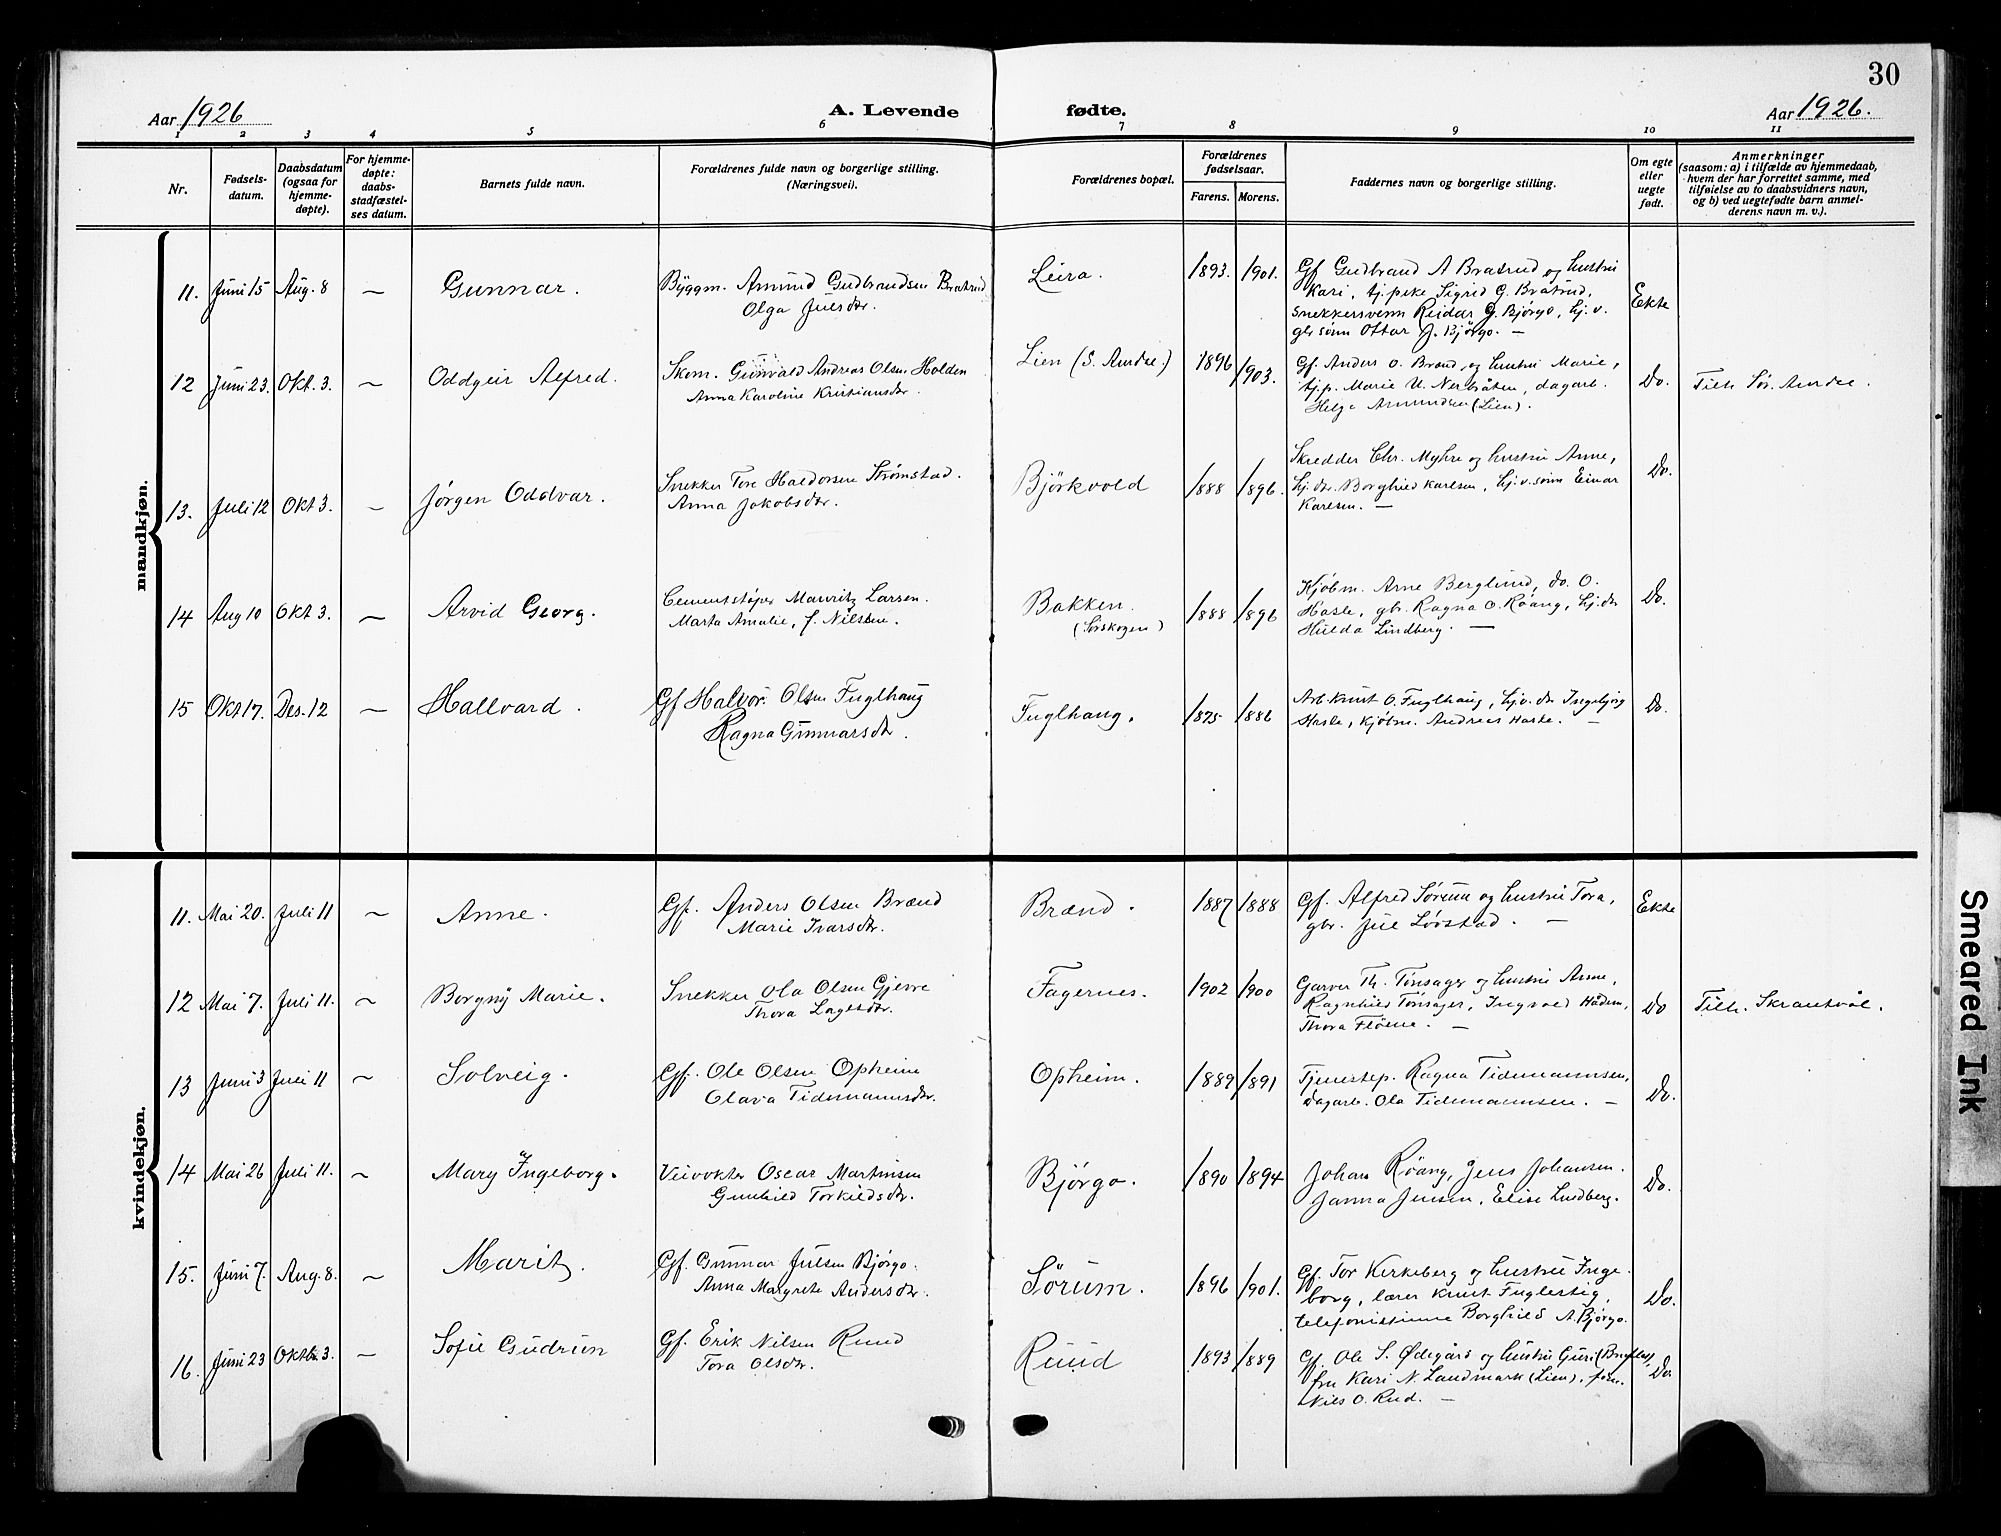 30
Aar 1926
A. Levende fødte.
Aar 1926.
1 2 3 4 5 6 7 8 9 10 11
Nr.
Fødsels-
datum.
Daabsdatum
(ogsaa for
hjemme-
døpte).
For hjemme-
døpte:
daabs-
stadfæstel-
ses datum.
Barnets fulde navn.
Forældrenes fulde navn og borgerlige stilling.
(Næringsvei).
Forældrenes bopæl.
Forældrenes
fødselsaar.
Farens. Morens.
Faddernes navn og borgerlige stilling.
Om egte
eller
uegte
født.
Anmerkninger
(saasom: a) i tilfælde av hjemmedaab,
hvem der har forrettet samme, med
tilføielse av to daabsvidners navn,
og b) ved uegtefødte barn anmel-
derens navn m. v.).
mandkjøn.
11. Juni 15 Aug. 8 — Gunnar.
Byggm. Amund Gudbrandsen Bratrud
Olga Julsdtr.
Leira.
1893. 1901.
Gf. Gudbrand A Bratrud og hustru
Kari, tj.pike Sigrid G. Bratrud,
snekkersvenn Reidar G. Bjørgo, hj. v.
gbr sønn Ottar J. Bjørgo. —
Ekte
12 Juni 23. Okt. 3. — Oddgeir Alfred.
Skom. Gunvald Andreas Olsen Holden
Anna Karoline Kristiansdtr.
Lien (S. Aurdal.)
1896 1903.
Gf. Anders O. Brænd og hustru Marie,
tj.p. Marie U. Nerbråten, dagarb.
Helge Amundsen (Lien).
Do.
Tilh. Sør. Aurdal.
13. Juli 12 Okt 3. — Jørgen Oddvar.
Snekker Tore Haldorsen Strømstad.
Anna Jakobsdtr.
Bjørkvold
1888 1896.
Skredder Chr. Myhre og hustru Anne,
hj. dtr. Borghild Karlsen, hj. v. sønn Einar
Karlsen. —
Do.
14 Aug 10 Okt 3. — Arvid Georg.
Cementstøper Mauritz Larsen.
Marta Amalie, f. Nilsen.
Bakken.
(Sørskogen)
1888 1896
Kjøbm. Arne Berglund, do. O.
Hasle, gbr. Ragna O. Røang, hj. dtr
Hulda Lindberg. —
Do.
15 Okt 17. Des. 12 — Hallvard.
Gf Halvor Olsen Fuglhaug
Ragna Gunnarsdtr.
Fuglhaug.
1875 1886
Arb. Knut O. Fuglhaug, hj.v. dtr Ingebjørg
Hasle, Kjøbm. Andreas Hasle. —
Do.
kvindekjøn.
11. Mai 20. Juli 11 — Anne.
Gf. Anders Olsen Brænd
Marie Ivarsdtr.
Brænd.
1887 1888
Gf. Alfred Sørum og hustru Tora,
gbr. Jul Løvstad. —
Ekte
12 Mai 7. Juli 11. — Borgny Marie.
Snekker Ola Olsen Gjevre
Thora Lagesdtr.
Fagernes.
1902 1900
Garver Th. Tonsager og hustru Anne,
Ragnhild Tonsager, Ingvald Hådem,
Thora Fløene. —
Do
Tilh. Skrautvål.
13 Juni 3 Juli 11 — Solveig.
Gf. Ole Olsen Opheim
Olava Tidemannsdtr.
Opheim.
1889 1891
Tjenestep. Ragna Tidemannsen,
dagarb. Ola Tidemannsen. —
Do.
14 Mai 26 Juli 11. — Mary Ingeborg.
Veivokter Oscar Martinsen
Gunhild Torkildsdtr.
Bjørgo.
1890 1894
Johan Røang, Jens Johansen.
Janna Jensen, Elise Lindberg.
Do.
15. Juni 7. Aug. 8. — Marit.
Gf. Gunnar Julsen Bjørgo.
Anna Margrete Andersdtr.
Sørum.
1896 1901.
Gf. Tor Kirkeberg og hustru Inge-
borg, lærer Knut Fuglestig,
telefonistinne Borghild A. Bjørgo.
Do.
16. Juni 23 Oktbr. 3. — Sofie Gudrun
Gf. Erik Nilsen Ruud
Tora Olsdtr.
Ruud
1893 1889
Gf. Ole S. Ødegård og hustru Guri
fru Kari N. Landmark (Lien),
Nils O. Rud. —
Do.
Smeared Ink